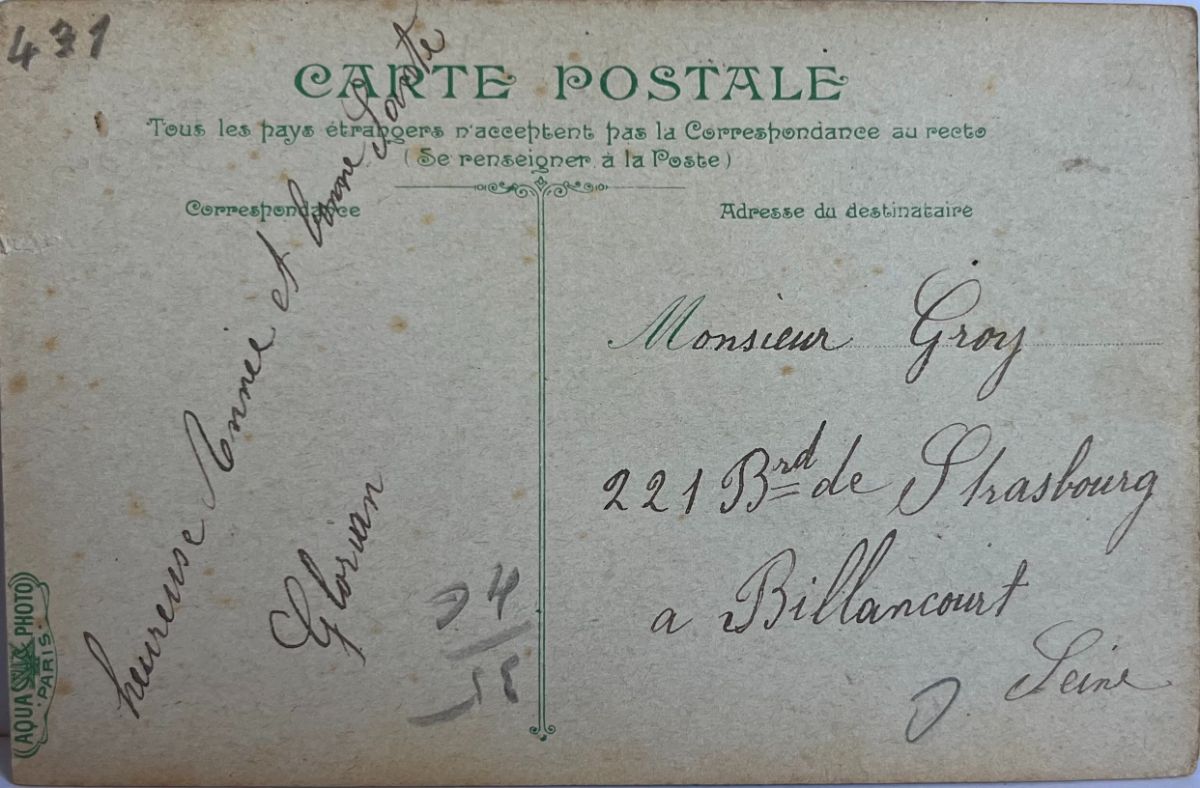 431
CARTE POSTALE
Tous les pays étrangers n'acceptent pas la Correspondance au recto
(Se renseigner à la Poste)
Correspondance
heureuse Année et bonne Santé
Glorian
Adresse du destinataire
Monsieur Groy
221 Brd de Strasbourg
a Billancourt
Seine
AQUA PHOTO
PARIS